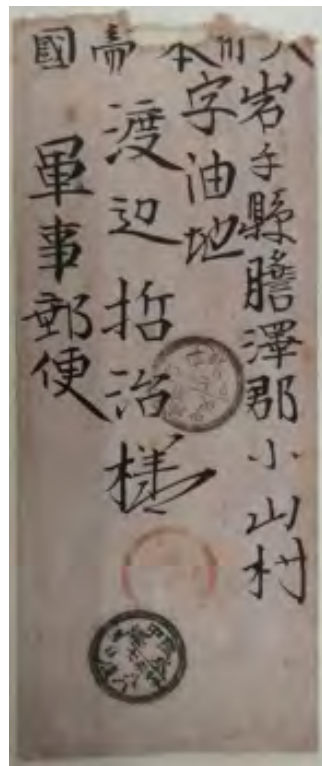 大日本帝國
岩手縣膽澤郡小山村
字油地
渡辺哲治様
軍事郵便